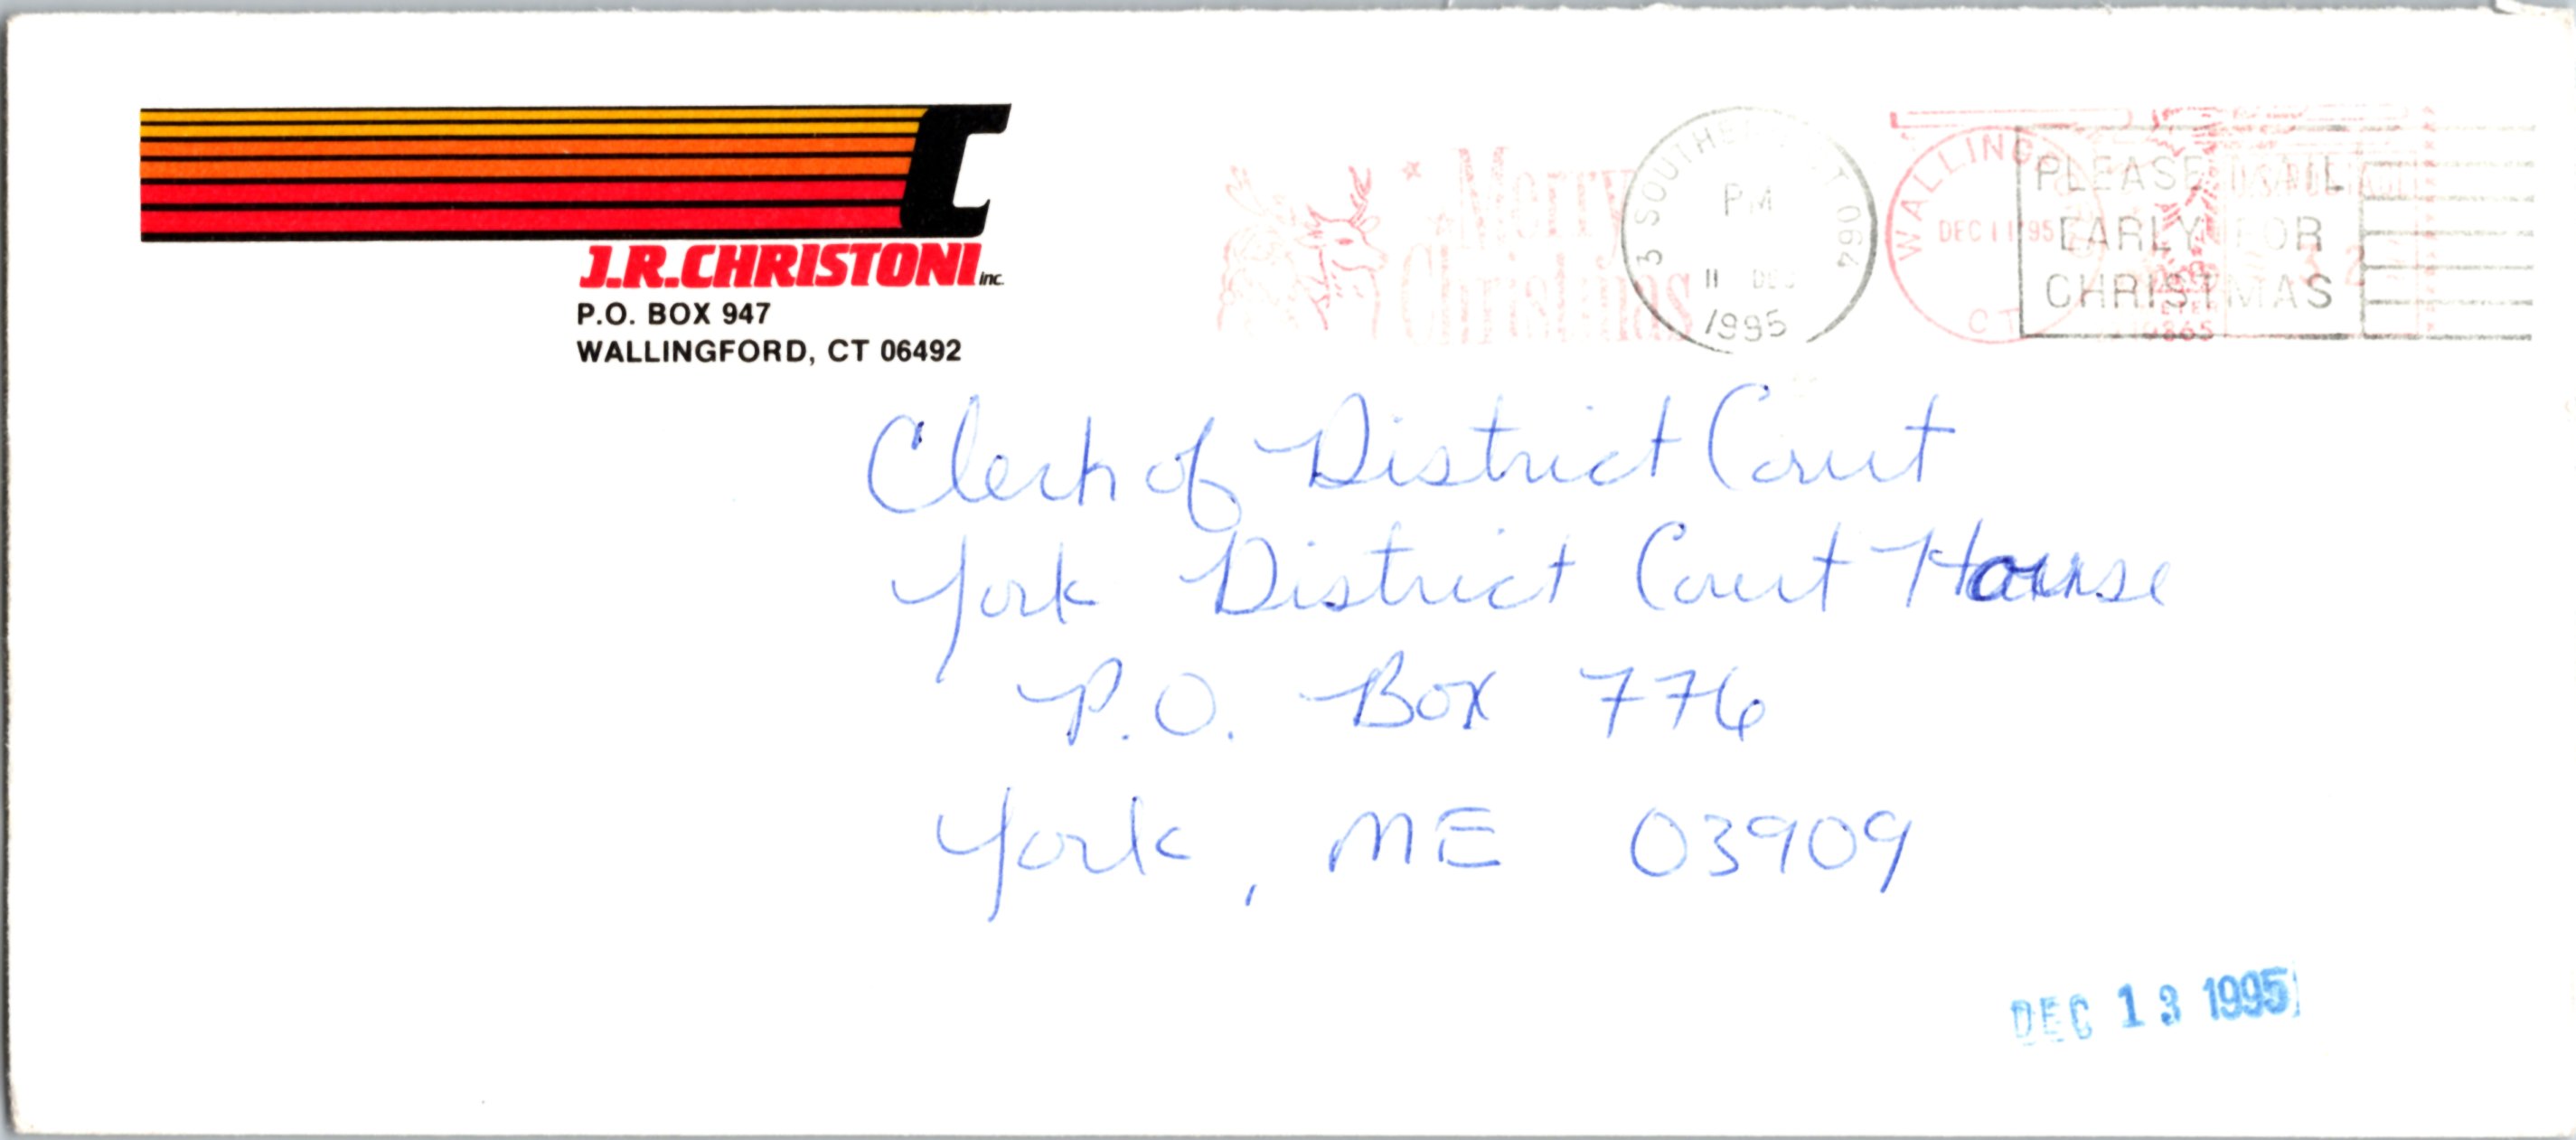 J.R.CHRISTONI inc.
P.O. BOX 947
WALLINGFORD, CT 06492
Merry
Christmas
PM
11 DEC
1995
DEC 11 '95
CT
PLEASE MAIL
EARLY FOR
CHRISTMAS
Clerk of District Court
York District Court House
P.O. Box 776
York, ME 03909
DEC 13 1995